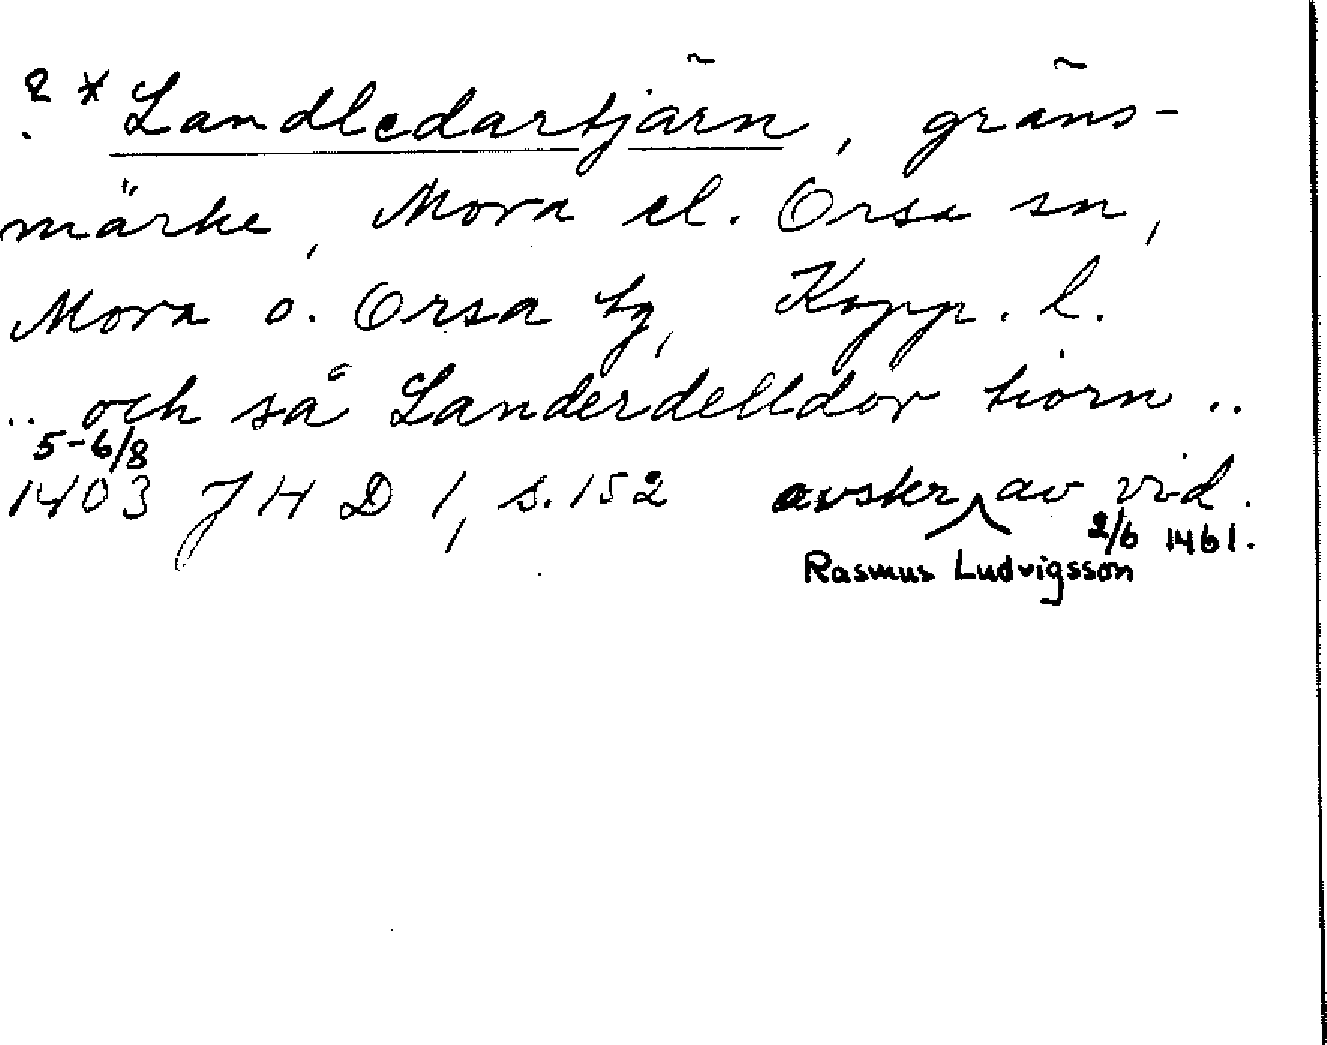 ? * Landledartjärn, gräns-
märke, Mora el. Orsa sn,
Mora o. Orsa tg, Kopp. l.
.. och så Landerdelldor tiorn ..
5-6/8
1403 JHD 1, s. 152 avskr av vid.
2/6 1461.
Rasmus Ludvigsson